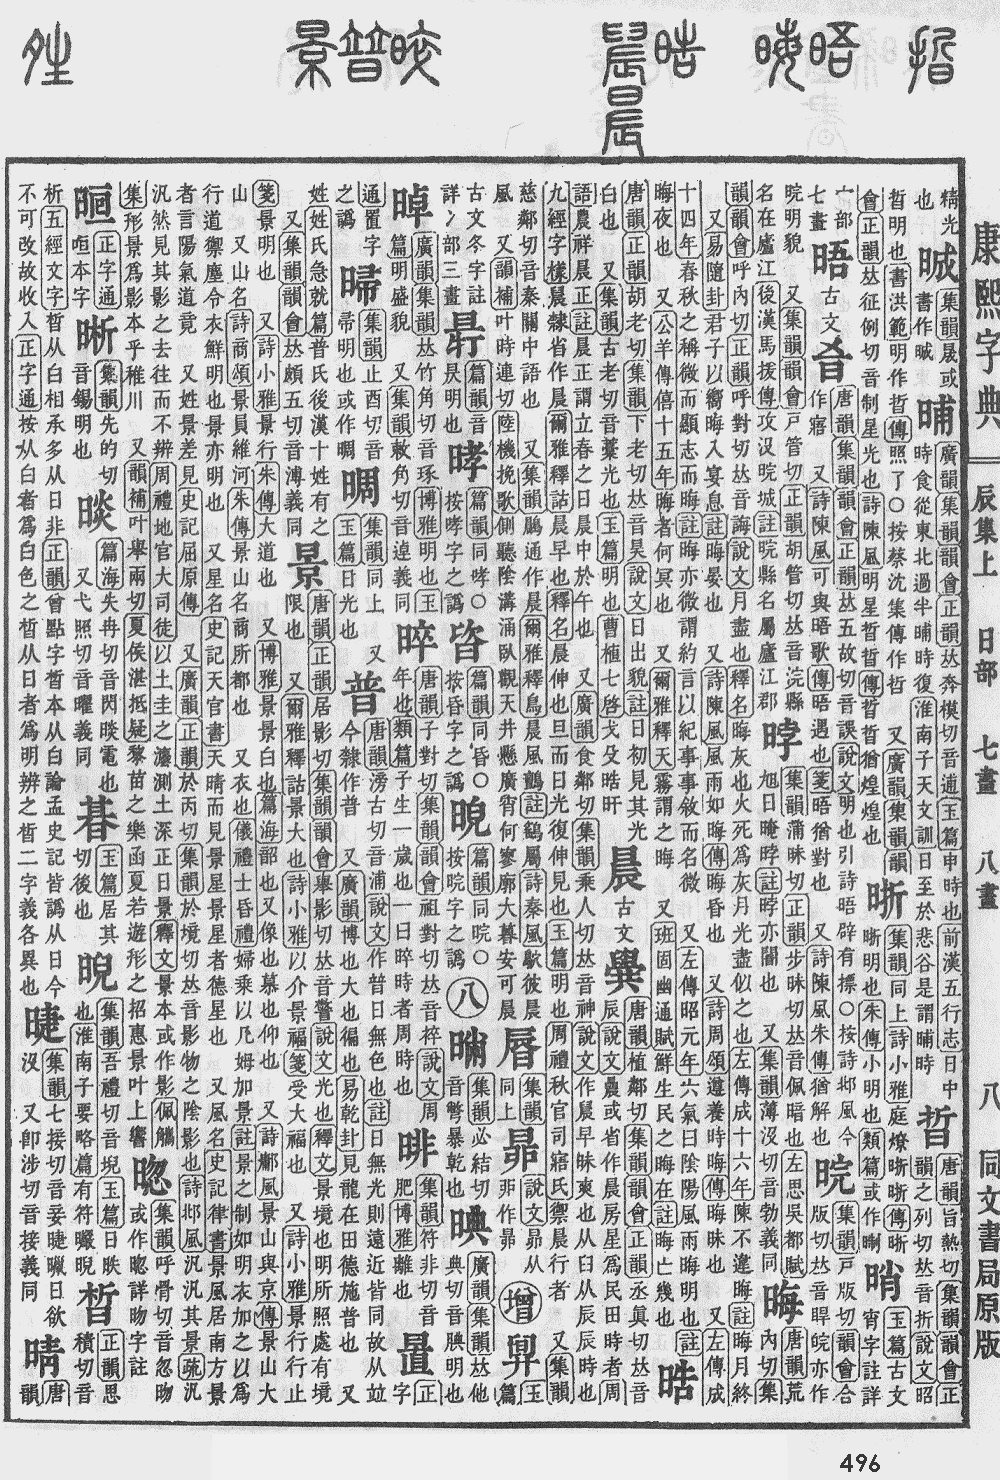 康熙字典 辰集上 日部 七畫 八畫 八 同文書局原版
精光也 晠 集韻晟或書作晠 晡 廣韻集韻韻會正韻𠀤奔模切音逋玉篇申時也前漢五行志日中時食從東北過半晡時復淮南子天文訓日至於悲谷是謂晡時 晢 唐韻旨熱切集韻韻會正韻之列切𠀤音折說文昭
晢明也書洪範明作晢傳照了○按蔡沈集傳作哲 又廣韻集韻韻會正韻𠀤征例切音制星光也詩陳風明星晢晢傳晢晢猶煌煌也 晣 集韻同上詩小雅庭燎晣晣傳晣晣晣明也朱傳小明也類篇或作晰 玉篇古文宵字註詳
宀部七畫 晤 古文 唐韻集韻韻會正韻𠀤五故切音誤說文明也引詩晤辟有摽○按詩邶風今作寤 又詩陳風可與晤歌傳晤遇也箋晤猶對也 又詩陳風朱傳猶解也 晥 集韻戸版切韻會合版切𠀤音睅皖亦作
晥明貌 又集韻韻會戸管切正韻胡管切𠀤音浣縣名在廬江後漢馬援傳攻沒晥城註晥縣名屬廬江郡 㫲 集韻蒲昧切正韻步昧切𠀤音佩暗也左思吳都賦旭日晻㫲註㫲亦闇也 又集韻薄沒切音勃義同 晦 唐韻荒內切集
韻韻會呼內切正韻呼對切𠀤音誨說文月盡也釋名晦灰也火死爲灰月光盡似之也左傳成十六年陳不違晦註晦月終 又易隨卦君子以嚮晦入宴息註晦晏也 又詩陳風風雨如晦傳晦昏也 又詩周頌遵養時晦傳晦昧也 又左傳成
十四年春秋之稱微而顯志而晦註晦亦微謂約言以紀事事敘而名微 又左傳昭元年六氣曰陰陽風雨晦明也註晦夜也 又公羊傳僖十五年晦者何冥也 又爾雅釋天霧謂之晦 又班固幽通賦鮮生民之晦在註晦亡幾也 晧
唐韻正韻胡老切集韻下老切𠀤音昊說文日出貌註日初見其光白也 又集韻古老切音藁光也玉篇明也曹植七啓戈殳晧旰 晨 古文 唐韻植鄰切集韻韻會正韻丞眞切𠀤音辰說文晨或省作晨房星爲民田時者周
語農祥晨正註晨正謂立春之日晨中於午也 又廣韻食鄰切集韻乘人切𠀤音神說文作晨早昧爽也从臼从辰辰時也九經字樣晨隸省作晨爾雅釋詁晨早也釋名晨伸也旦而日光復伸見也玉篇明也周禮秋官司寤氏禦晨行者 又集韻
慈鄰切音秦關中語也 又集韻鷐通作晨爾雅釋鳥晨風鸇註鷂屬詩秦風鴥彼晨風 又韻補叶時連切陸機挽歌側聽陰溝涌臥觀天井懸廣宵何寥廓大暮安可晨 㫳 集韻同上 說文昴从 丣作昴 增 玉篇
古文冬字註詳冫部三畫 篇韻音昃明也 哮 篇韻同哮○按哮字之譌 篇韻同昏○按昏字之譌 晼 篇韻同晥○按晥字之譌 八 集韻必結切音彆暴乾也 晪 廣韻集韻𠀤他典切音腆明也
晫 廣韻集韻𠀤竹角切音琢博雅明也玉篇明盛貌 又集韻敕角切音逴義同 晬 唐韻子對切集韻韻會祖對切𠀤音綷說文周年也類篇子生一歲也一日晬時者周時也 集韻符非切音肥博雅離也 正字
通置字之譌 集韻止酉切音帚明也或作晭 晭 集韻同上 又玉篇日光也 普 唐韻滂古切音浦說文作暜日無色也註日無光則遠近皆同故从竝今隸作普 又廣韻博也大也徧也易乾卦見龍在田德施普也 又
姓姓氏急就篇普氏後漢十姓有之 又集韻韻會𠀤頗五切音溥義同 景 唐韻正韻居影切集韻韻會舉影切𠀤音警說文光也釋文景境也明所照處有境限也 又爾雅釋詁景大也詩小雅以介景福箋受大福也 又詩小雅景行行止
箋景明也 又詩小雅景行朱傳大道也 又博雅景景白也篇海韶也又像也慕也仰也 又詩鄘風景山與京傳景山大山 又山名詩商頌景員維河朱傳景山名商所都也 又衣也儀禮士昏禮婦乘以几姆加景註景之制如明衣加之以爲
行道禦塵令衣鮮明也景亦明也 又星名史記天官書天晴而見景星景星者德星也 又風名史記律書景風居南方景者言陽氣道竟 又姓景差見史記屈原傳 又廣韻正韻於丙切集韻於境切𠀤音影物之陰影也詩邶風汎汎其景疏汎汎
汎然見其影之去往而不辨周禮地官大司徒以土圭之灋測土深正日景釋文景本或作影佩觿集形景爲影本乎稚川 又韻補叶舉兩切夏侯湛抵疑黎苗之樂函夏若遊形之招惠景叶上響 集韻呼骨切音忽昒或作㫚詳昒字註
正字通晅本字 晰 集韻先的切音錫明也 晱 篇海失冉切音閃晱電也 又弋照切音曜義同 㫷 玉篇居其切後也 晲 集韻吾禮切音堄玉篇日昳也淮南子要略篇有符㬮晲 晳 正韻思積切音
析五經文字晳从白相承多从日非正韻曾點字晳本从白論孟史記皆譌从日今不可改故收入正字通按从白者爲白色之晳从日者爲明辨之晢二字義各異也 集韻七接切音妾㫸㬮日欲沒 又卽涉切音接義同 晴 唐韻
496